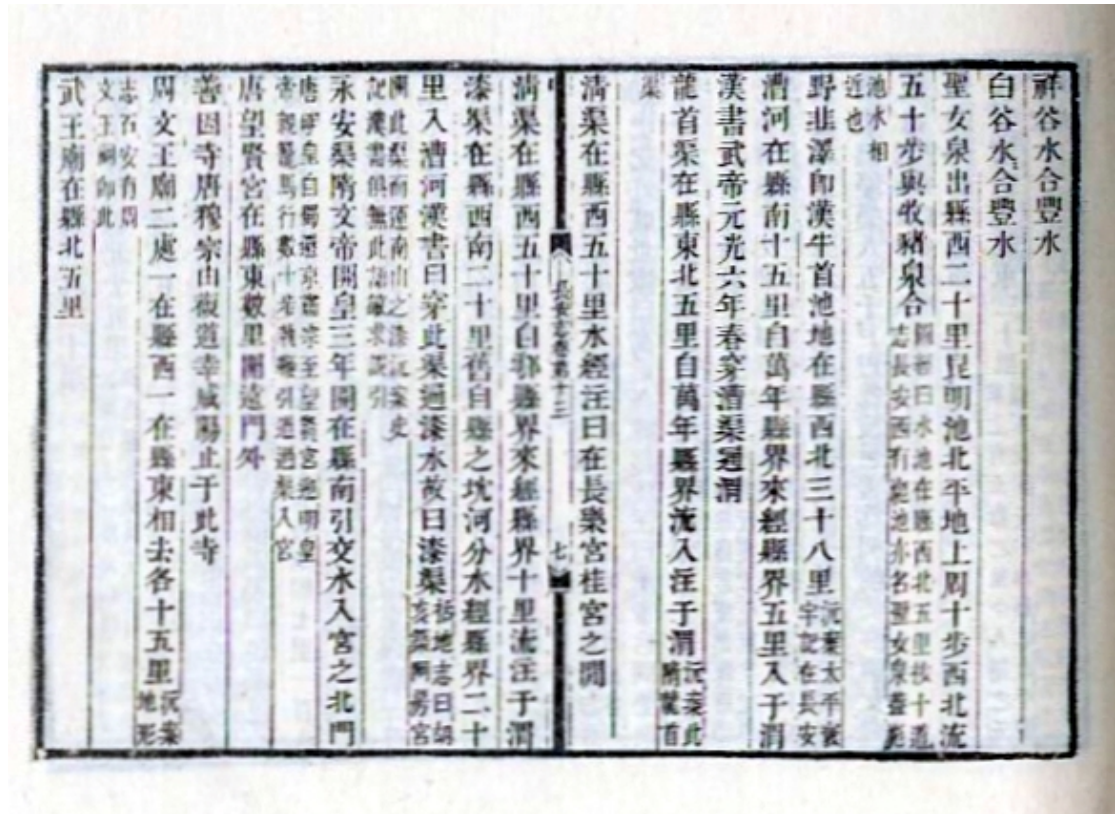 祥谷水合豐水
白谷水合豐水
聖女泉出縣西二十里昆明池北平地上周十步西北流
五十步與牧豬泉合
圖經曰水池在縣西北五里按十道
志長安西有 池亦名聖女泉蓋
池水相
近也
野韭澤即漢牛首池地在縣西北三十八里
沅案太平寰
宇記在長安
漕河在縣南十五里自萬年縣界來經縣界五里入于渭
漢書武帝元光六年春穿漕渠通渭
龍首渠在縣東北五里自萬年縣界流入注于渭
沅案此
隋龍首
渠
清渠在縣西五十里水經注曰在長樂宮桂宮之間
長安志卷第十二
七
清渠在縣西五十里自鄠縣界來經縣界十里流注于渭
漆渠在縣西南二十里舊自縣之坑河分水經縣界二十
里入漕河漢書曰穿此渠過漆水故曰漆渠
括地志曰胡
亥築阿房宮
開此渠而運南山之漆沅案史
記漢書俱無此語 求誤引
永安渠隋文帝開皇三年開在縣南引交水入宮之北門
唐 明皇自蜀還京肅宗至望賢宮迎明皇
帝親 馬行數十步 鞚引過過渠入宮
唐望賢宮在縣東數里開遠門外
善因寺唐穆宗由複道幸咸陽止于此寺
周文王廟二處一在縣西一在縣東相去各十五里
沅案
地形
志石安有周
文王祠即此
武王廟在縣北五里